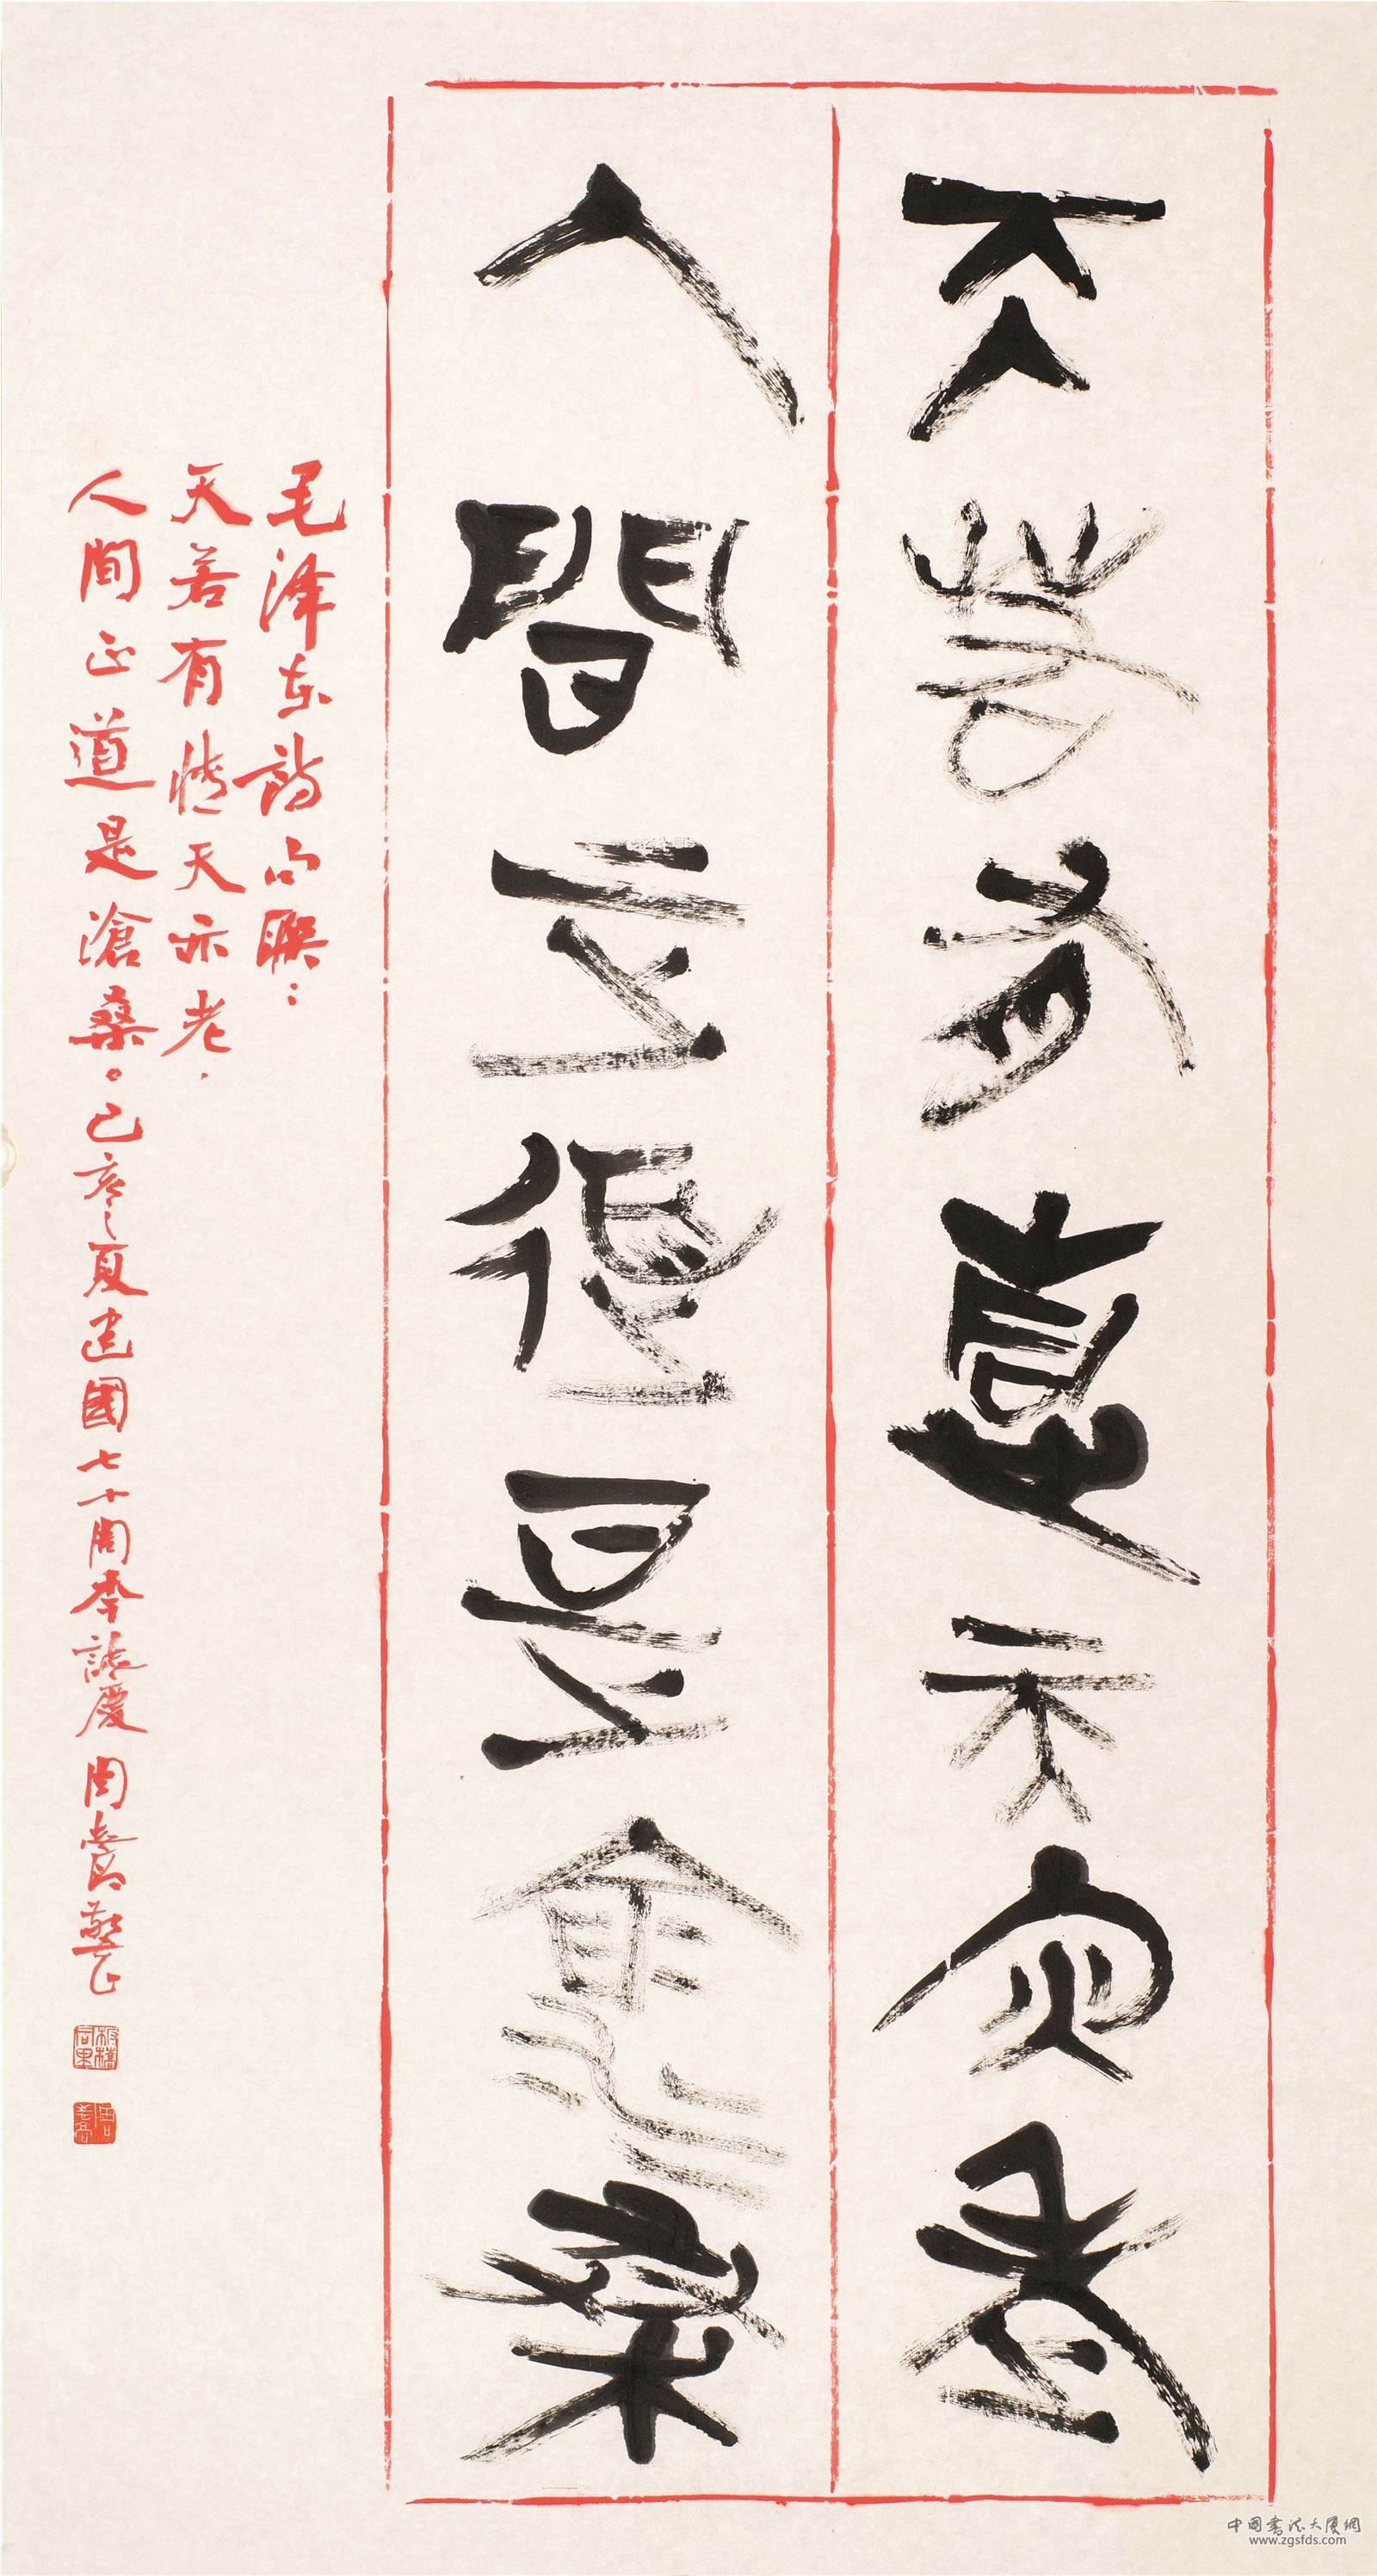 天若有情天亦老
人間正道是滄桑
毛泽东詩句联：
天若有情天亦老，
人間正道是滄桑。己亥之夏建國七十周年誌慶
中国书法大厦網
www.zgsfds.com